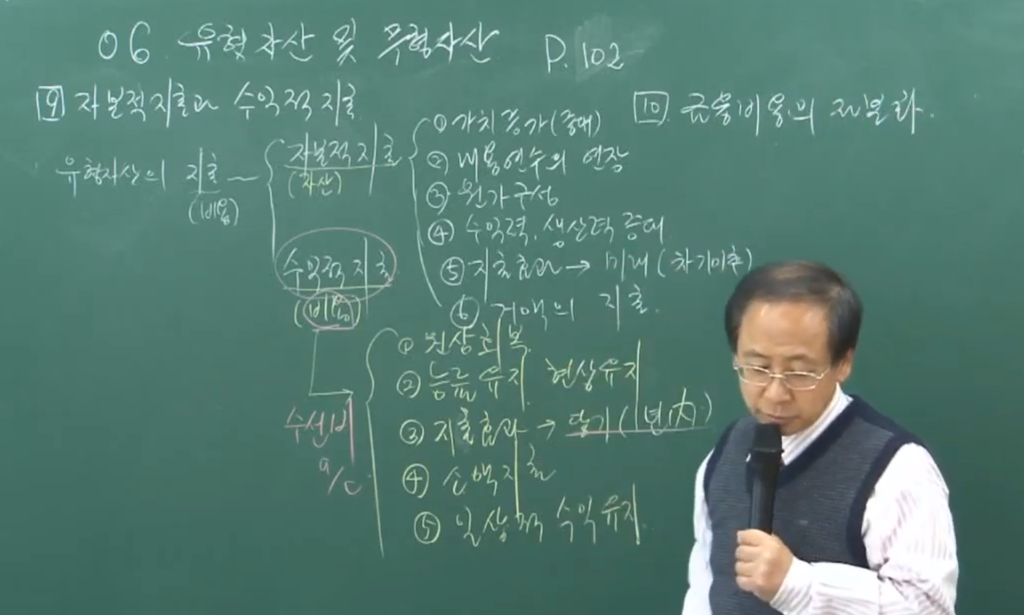 06. 유형자산 및 무형자산 P.102
9 자본적지출과 수익적지출
유형자산의 지출 ~
(비용)
자본적지출
(자산)
① 가치증가(증대)
② 내용연수의 연장
③ 원가구성
④ 수익력, 생산력 증대
⑤ 지출효과 → 미래(차기이후)
⑥ 거액의 지출.
수익적지출
(비용)
수선비
a/c
① 원상회복.
② 능률유지, 현상유지
③ 지출효과 → 당기(1년內)
④ 소액지출
⑤ 일상적 수익유지.
10 금융비용의 자본화.